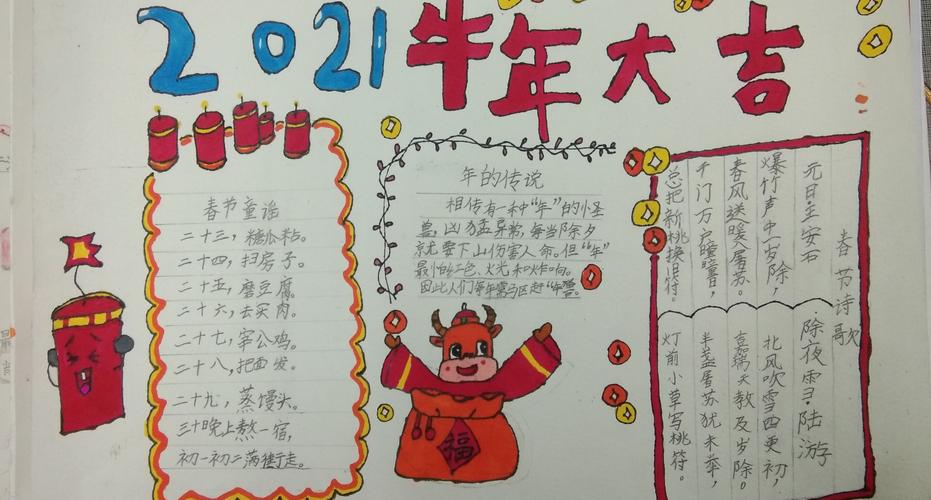 2021牛年大吉
春节童谣
二十三，糖瓜粘。
二十四，扫房子。
二十五，磨豆腐。
二十六，去买肉。
二十七，宰公鸡。
二十八，把面发。
二十九，蒸馒头。
三十晚上熬一宿，
初一初二满街走。
年的传说
相传有一种“年”的怪
兽，凶猛异常，每当除夕
就要下山伤害人命。但“年”
最怕红色、火光和炸响。
因此人们每年需驱赶“年兽”。
福
春节诗歌
元日·王安石
爆竹声中一岁除，
春风送暖入屠苏。
千门万户曈曈日，
总把新桃换旧符。
除夜雪·陆游
北风吹雪四更初，
嘉瑞天教及岁除。
半盏屠苏犹未举，
灯前小草写桃符。